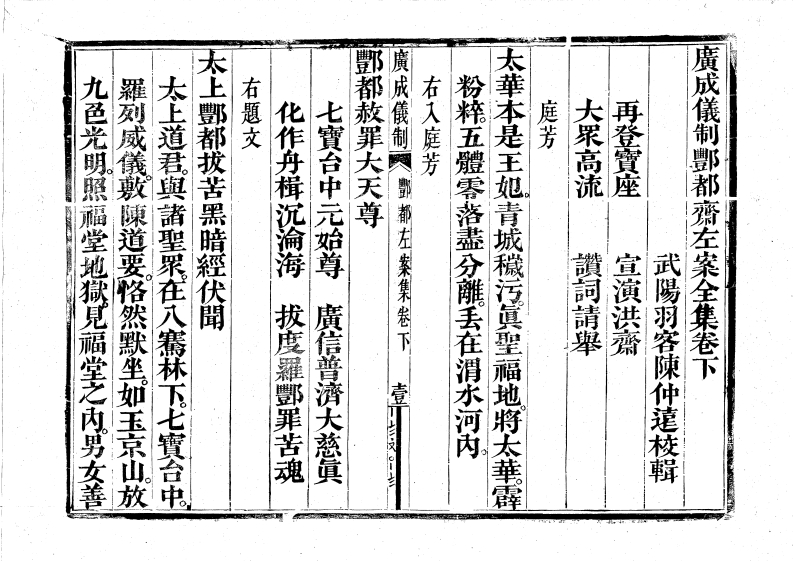 廣成儀制酆都齋左案全集卷下
武陽羽客陳仲遠校輯
再登寶座　宣演洪齋
大眾高流　讚詞請舉
庭芳
太華本是王妃。青城穢污。眞聖福地。將太華。霹
粉粹。五體零落盡分離。丢在渭水河內。
右入庭芳
廣成儀制　酆都左案集卷下　壹
酆都赦罪大天尊
七寶台中元始尊　廣信普濟大慈眞
化作舟楫沉淪海　拔度羅酆罪苦魂
右題文
太上酆都拔苦黑暗經伏聞
太上道君。與諸聖眾。在八騫林下。七寶台中。
羅列威儀。敷陳道要。恪然默坐。如玉京山。放
九色光明。照福堂地獄。見福堂之內。男女善